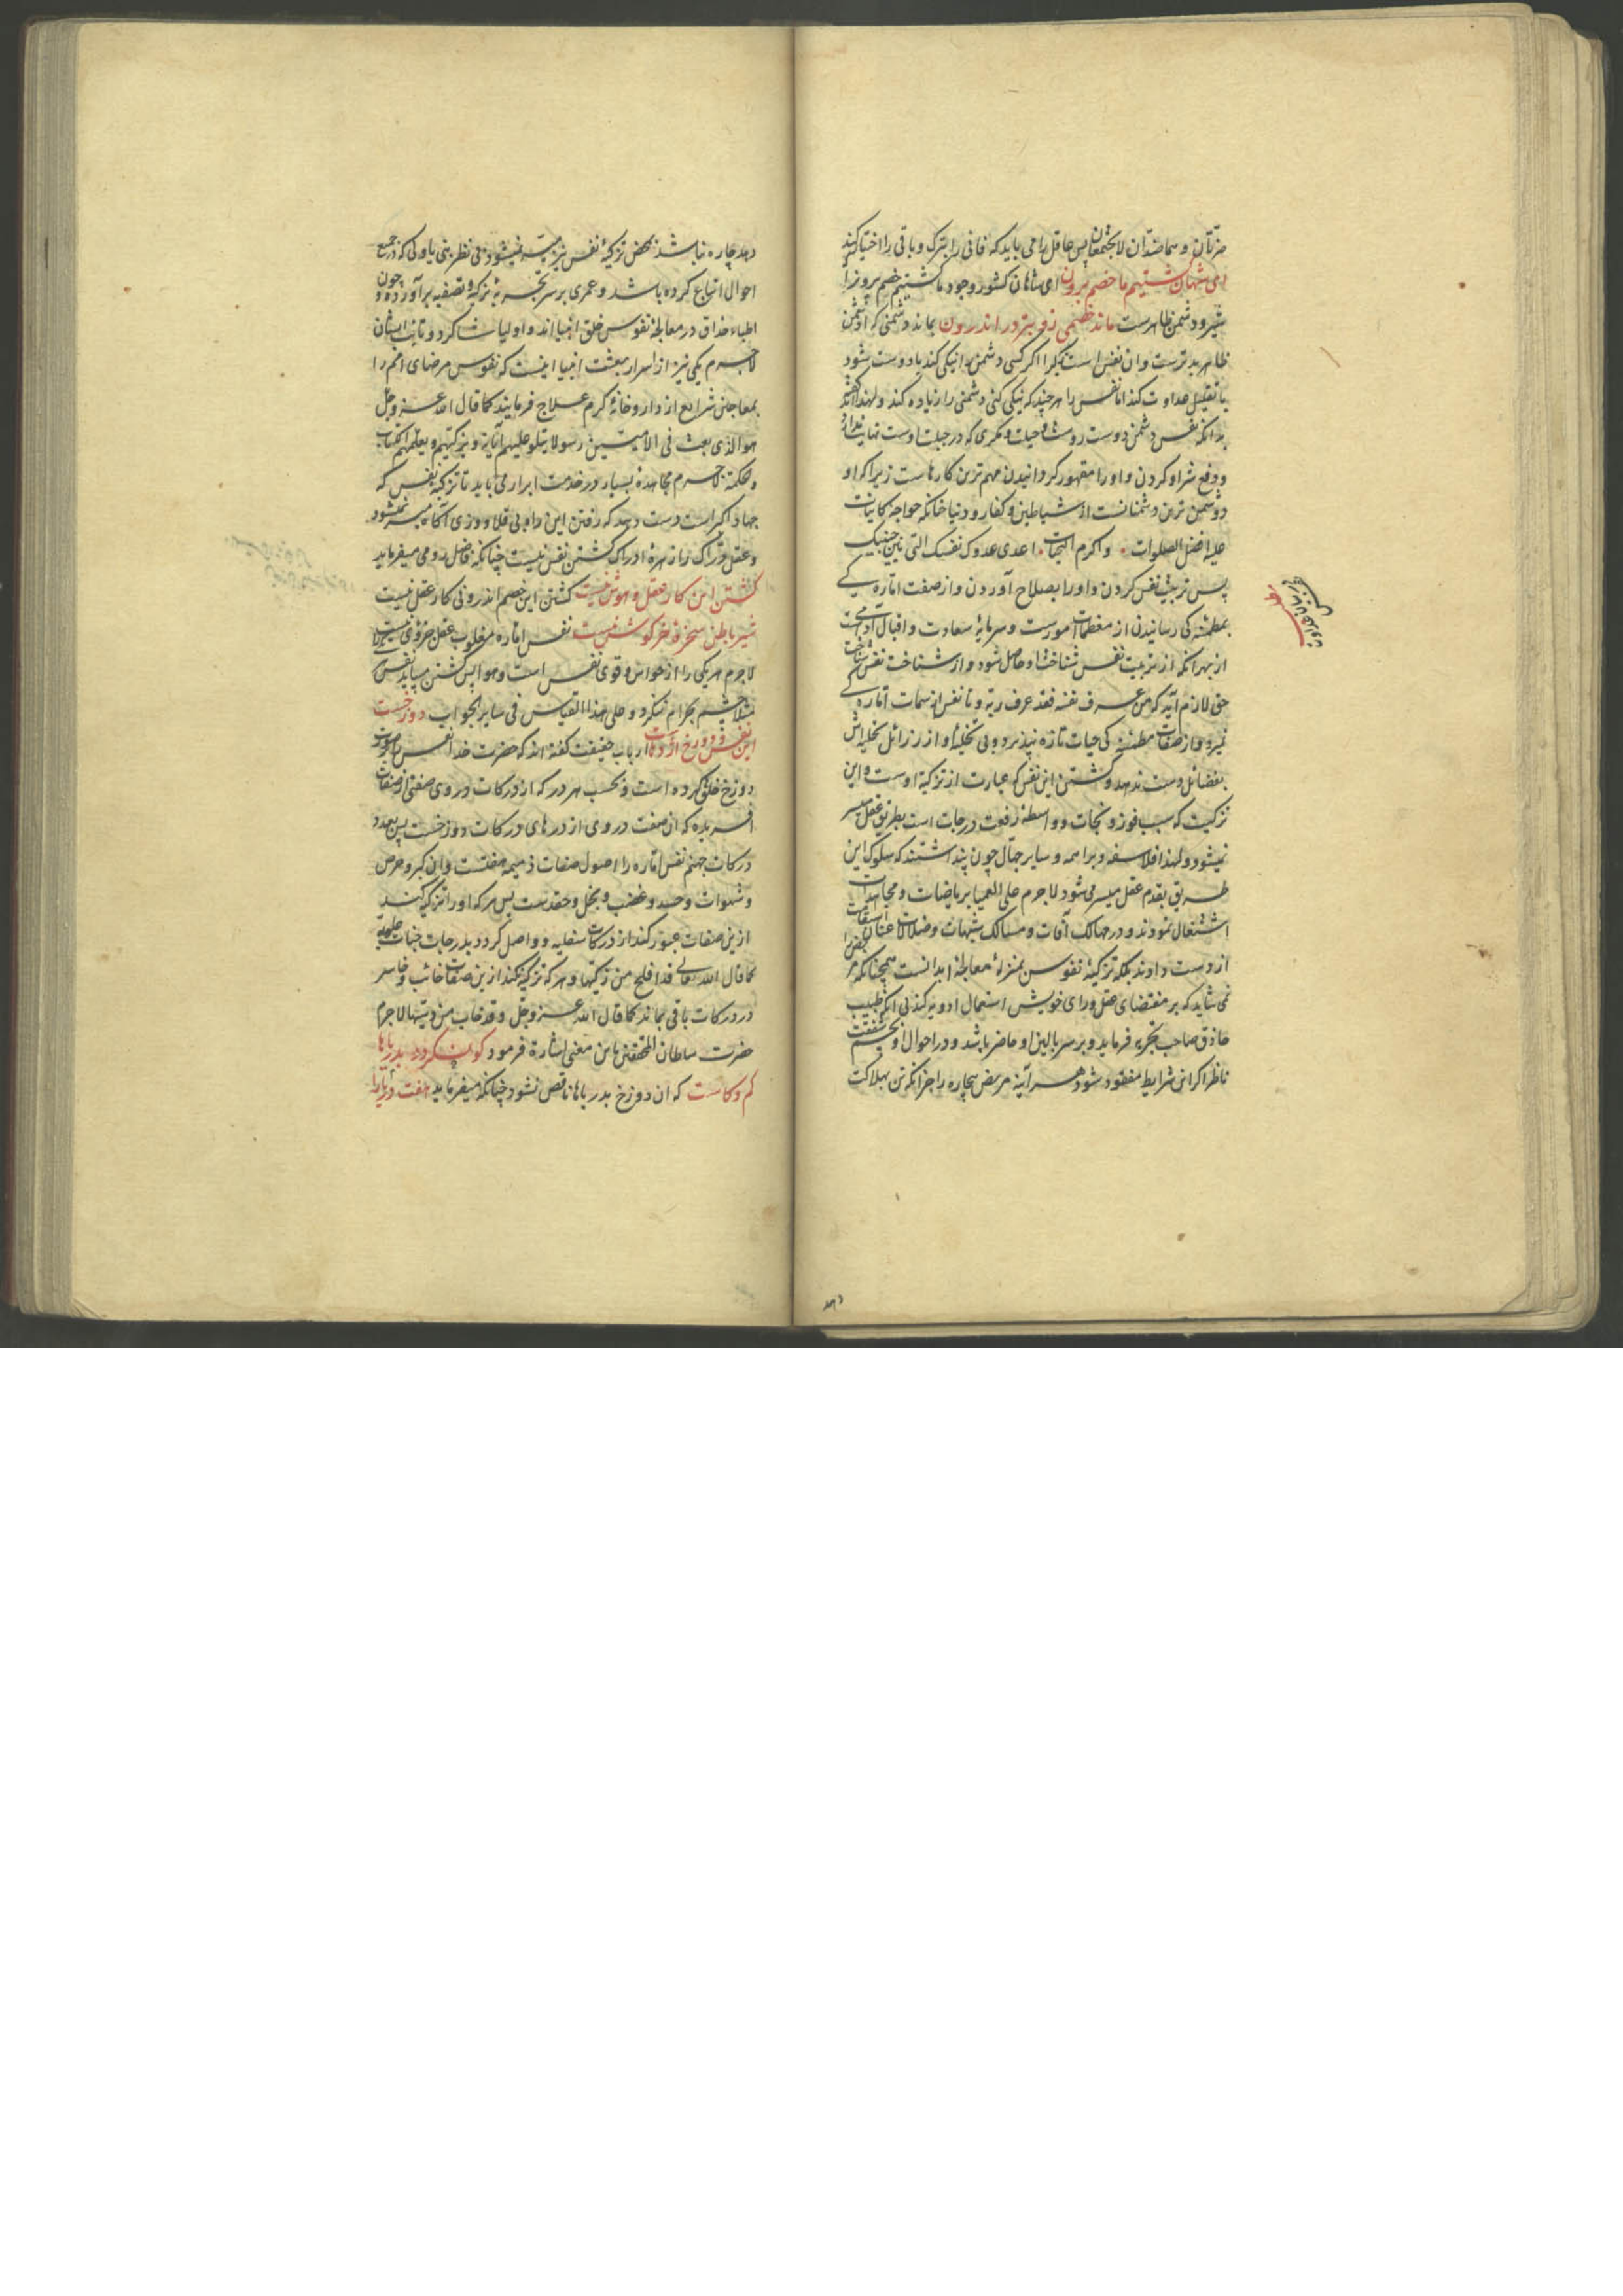 ضرتان و هما ضدان لا یجتمعان پس عاقل را می باید که فانی را بترک و باقی را اختیار کند
ای شهان کشتیم ما خصم برون ای شاهان کشور وجود ما کشتیم خصم برون را
شیر و دشمن ظاهرست ماند خصمی زو بتر در اندرون بماند دشمنی که از دشمن
ظاهر بدترست و آن نفس است زیرا اگر کسی دشمن را نیکی کند با دوست شود
یا تقلیل عداوت کند اما نفس را هر چند که نیکی کنی دشمنی را زیاده کند و لهذا گفته اند
بدانکه نفس دشمن دوست روست و حیات و مکری که در جبلت اوست نهایت ندارد
و دفع شر او کردن و او را مقهور کردانیدن مهم ترین کارهاست زیرا که او
دشمن ترین دشمنانست از شیاطین و کفار و دنیا چنانکه خواجه کاینات
علیه افضل الصلوات و اکرم التحیات اعدی عدوک نفسک التی بین جنبیک
پس تربیت نفس کردن و او را بصلاح آوردن و از صفت اماره کی
بمطمئنه کی رسانیدن از معظمات امورست و سرمایه سعادت و اقبال آدمی است
از بهر آنکه از تربیت نفس شناخت او حاصل شود و از شناخت نفس شناخت
حق لازم آید که من عرف نفسه فقد عرف ربه و تا نفس از سمات اماره کی
نمیرد و از صفات مطمئنه کی حیات تازه نپذیرد و بی تخلیه او از رزائل تحلیه اش
بفضائل دست ندهد و کشتن این نفس که عبارت از تزکیه اوست و این
تزکیت که سبب فوز و نجات و واسطه رفعت درجات است بطریق عقل میسر
نمیشود و لهذا فلاسفه و براهمه و سایر جهال چون پنداشتند که سلوک این
طریق بقدم عقل میسر می شود لاجرم علی العمیا بریاضات و مجاهدات
اشتغال نمودند و در مهالک آفات و مسالک شبهات و ضلالات عنان استقامت
از دست دادند بلکه تزکیه نفوس بمنزله معالجه ابدانست همچنانکه مریض را
نمی شاید که بر مقتضای عقل و رای خویش استعمال ادویه کند بی آنکه طبیب
حاذق صاحب تجربه فرماید و بر سر بالین او حاضر باشد و در احوال او بچشم شفقت
ناظر اگر این شرایط مفقود شود هر آینه مریض بیچاره را جز آنکه تن بهلاکت
دهد
دهد چاره نباشد محض تزکیه نفس نیز میسر نمیشود بی نظر نبی یا ولی که در جمیع
احوال اتباع کرده باشد و عمری بر سر تجربه تزکیه و تصفیه برآورده و چون
اطباء حذاق در معالجه نفوس خلق انبیا اند و اولیا شاگرد و نایب ایشان
لاجرم یکی نیز از اسرار بعثت انبیا اینست که نفوس مرضای امم را
بمعاجین شرایع از داروخانه کرم علاج فرمایند کما قال الله عز و جل
هو الذی بعث فی الامیین رسولا یتلو علیهم آیاته و یزکیهم و یعلمهم الکتاب
و الحکمة لاجرم مجاهده بسیار در خدمت ابرار می باید تا تزکیه نفس که
جهاد اکبر است دست دهد که رفتن این راه بی قلاووزی آگاه میسر نمیشود
و عقل دراک را زهره ادراک کشتن نفس نیست چنانکه فاضل رومی میفرماید
کشتن این کار عقل و هوش نیست کشتن این خصم اندرونی کار عقل نیست
شیر باطن سخره خرگوش نیست نفس اماره مغلوب عقل جزوی نیست
لاجرم هر یکی را از حواس و قوی نفس است و هوا پس کشتن می باید نفس
مثلا چشم بحرام ننگرد و علی هذا القیاس فی سایر الجواب دوزخست
این نفس و دوزخ اژدهاست ارباب حقیقت گفته اند که حضرت خدا نفس را بصورت
دوزخ خلق کرده است و بحسب هر در که از درکات در وی صفتی از صفات
آفریده که آن صفت در وی از درهای درکات دوزخست پس بعدد
درکات جهنم نفس اماره را اصول صفات ذمیمه هفتست و آن کبر و حرص
و شهوات و حسد و غضب و بخل و حقدست پس هر که او را تزکیه کند
ازین صفات عبور کند از درکات سفلیه و واصل گردد بدرجات جنات علویه
کما قال الله تعالی قد افلح من زکیها و هر که تزکیه نکند ازین صفات خائب و خاسر
در درکات باقی بماند کما قال الله عز و جل و قد خاب من دسیها لاجرم
حضرت سلطان المحققین باین معنی اشارة فرمود کو نکردد بدریاها
کم و کاست که آن دوزخ بدریاها ناقص نشود چنانکه میفرماید هفت دریا را